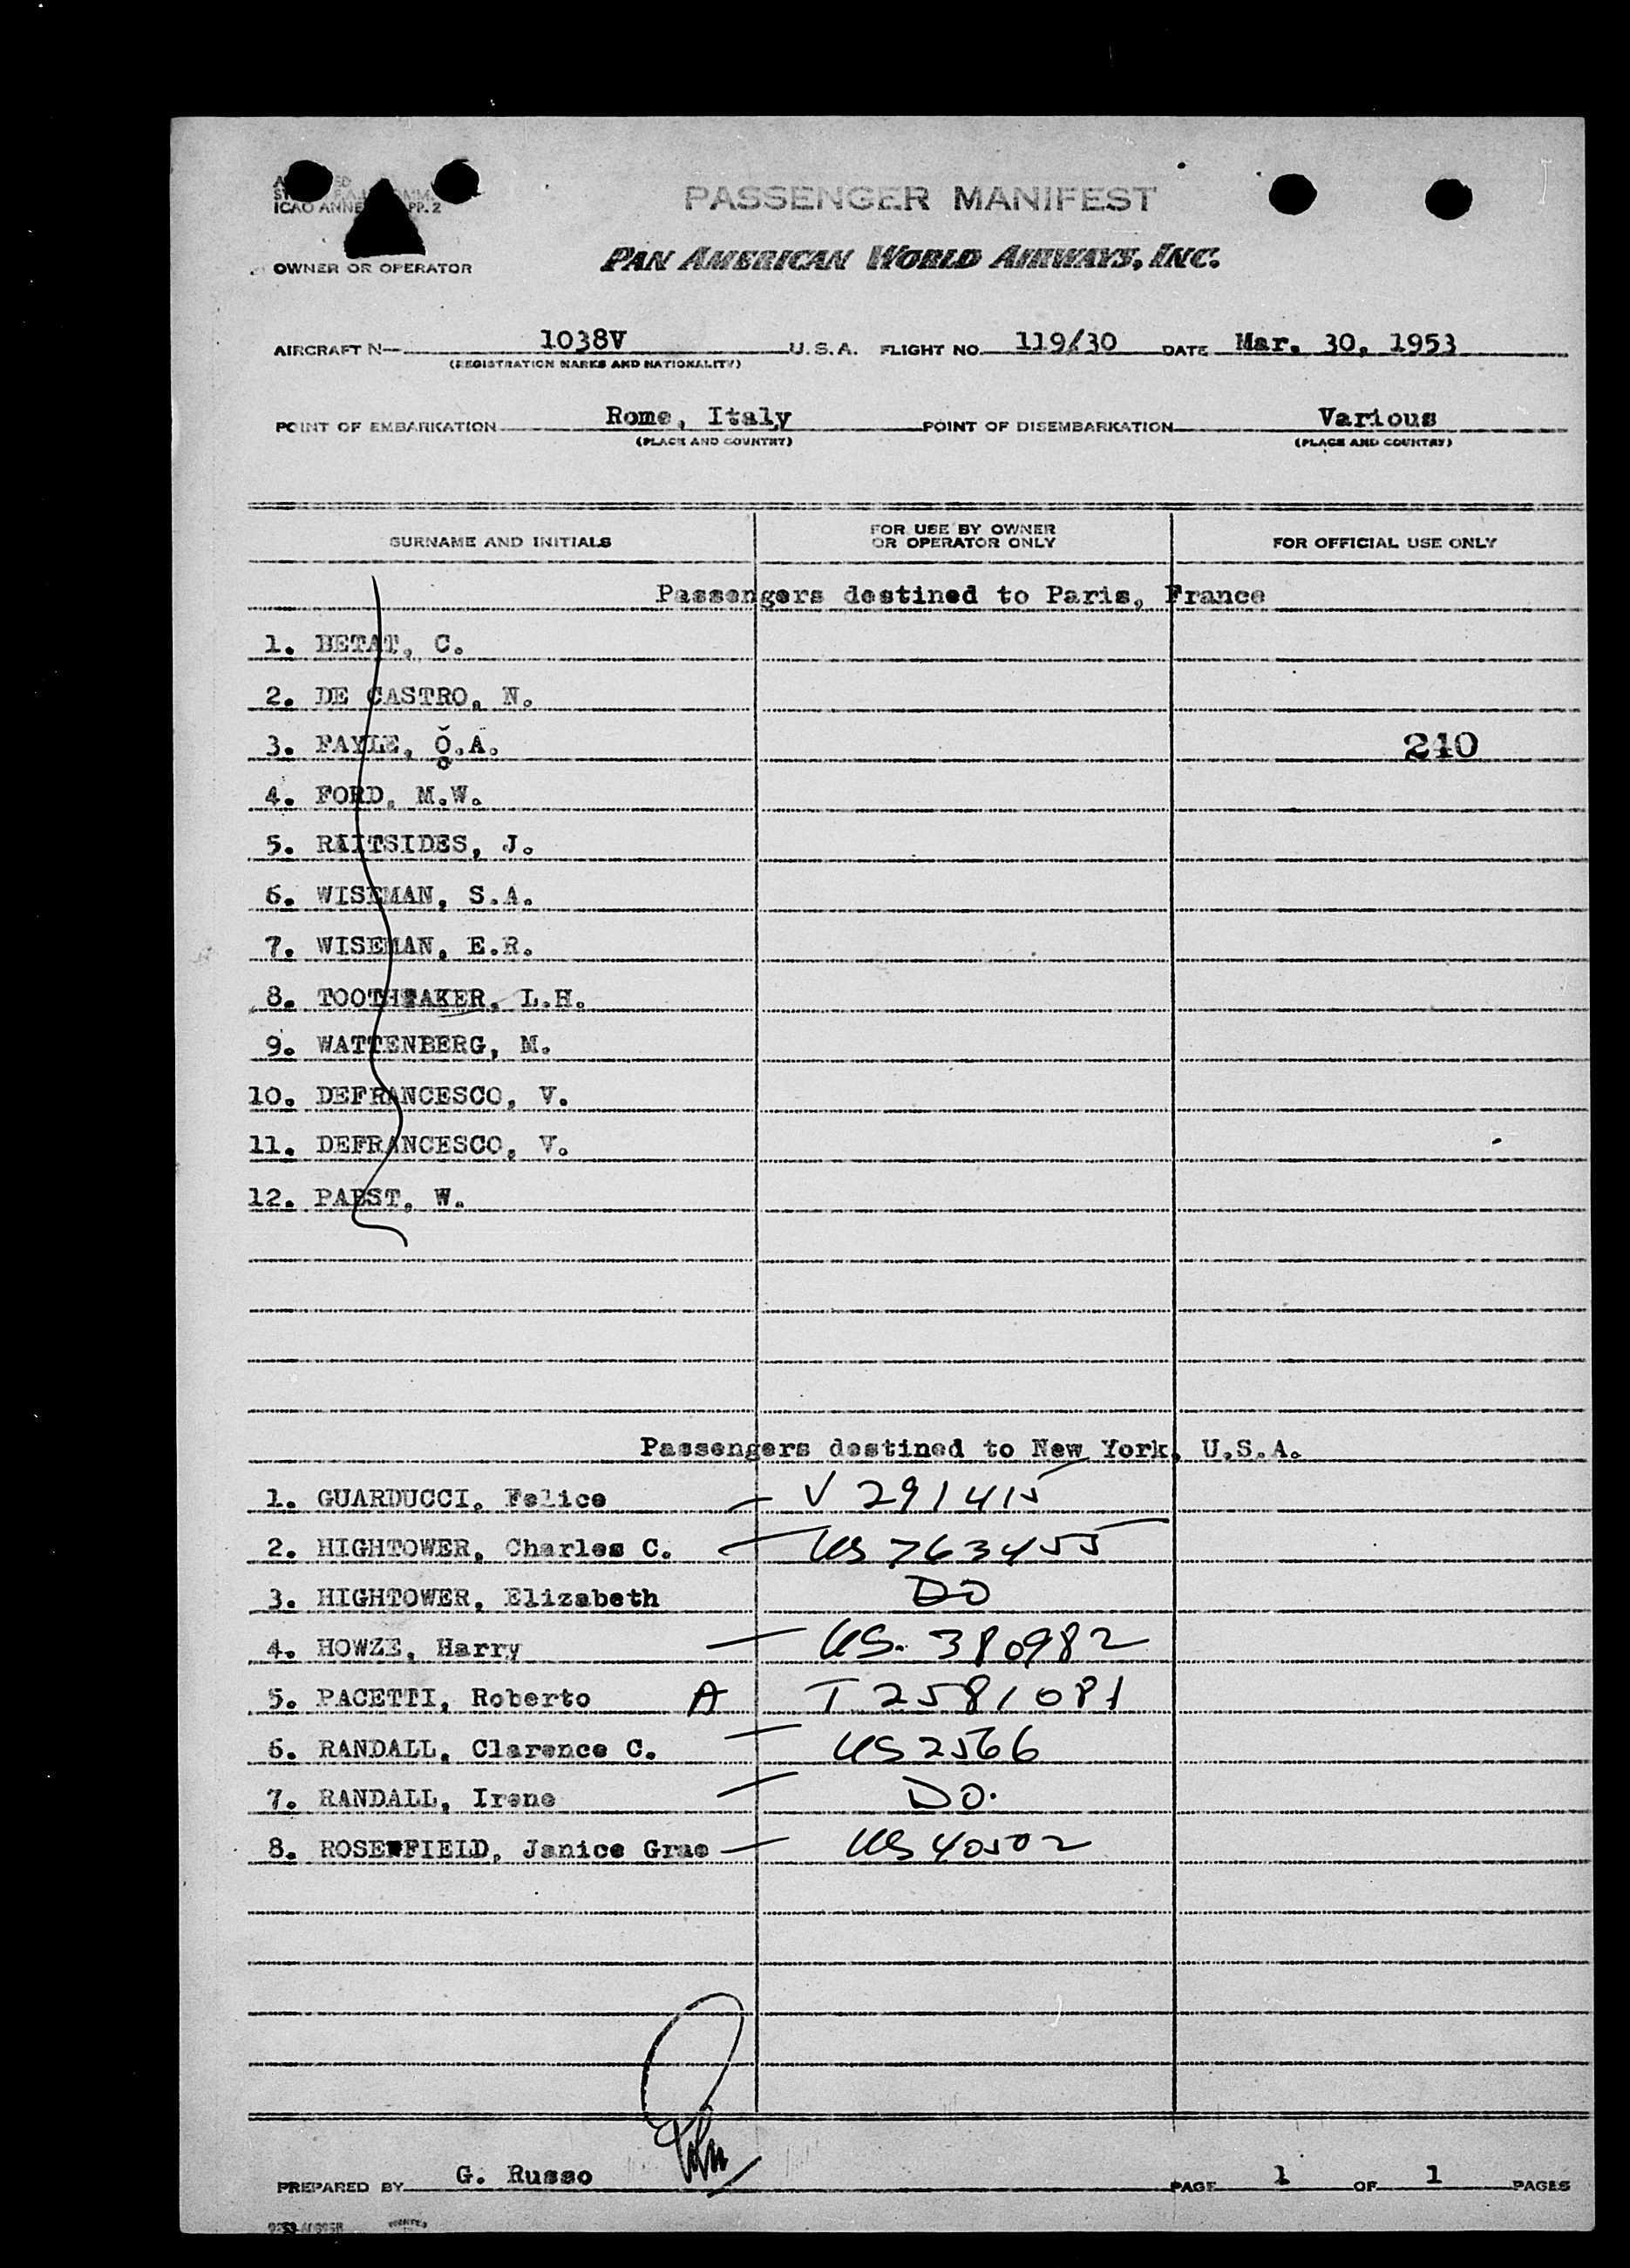 ICAO ANNE PP. 2
PASSENGER MANIFEST
OWNER OR OPERATOR
PAN AMERICAN WORLD AIRWAYS, INC.
AIRCRAFT N— 1038V U.S.A. FLIGHT NO. 119/30 DATE Mar. 30, 1953
(REGISTRATION MARKS AND NATIONALITY)
POINT OF EMBARKATION Rome, Italy POINT OF DISEMBARKATION Various
(PLACE AND COUNTRY) (PLACE AND COUNTRY)
SURNAME AND INITIALS FOR USE BY OWNER OR OPERATOR ONLY FOR OFFICIAL USE ONLY
Passengers destined to Paris, France
1. BETAT, C.
2. DE CASTRO, N.
3. FAYLE, O.A. 240
4. FORD, M.W.
5. RAITSIDES, J.
6. WISEMAN, S.A.
7. WISEMAN, E.R.
8. TOOTHTAKER, L.H.
9. WATTENBERG, M.
10. DEFRANCESCO, V.
11. DEFRANCESCO, V.
12. PABST, W.
Passengers destined to New York, U.S.A.
1. GUARDUCCI, Felice — V 291415
2. HIGHTOWER, Charles C. — US 763455
3. HIGHTOWER, Elizabeth DO
4. HOWZE, Harry — US. 380982
5. PACETTI, Roberto A T 2581081
6. RANDALL, Clarence C. — US 2566
7. RANDALL, Irene — DO.
8. ROSENFIELD, Janice Grae — US 40502
PREPARED BY G. Russo PAGE 1 OF 1 PAGES